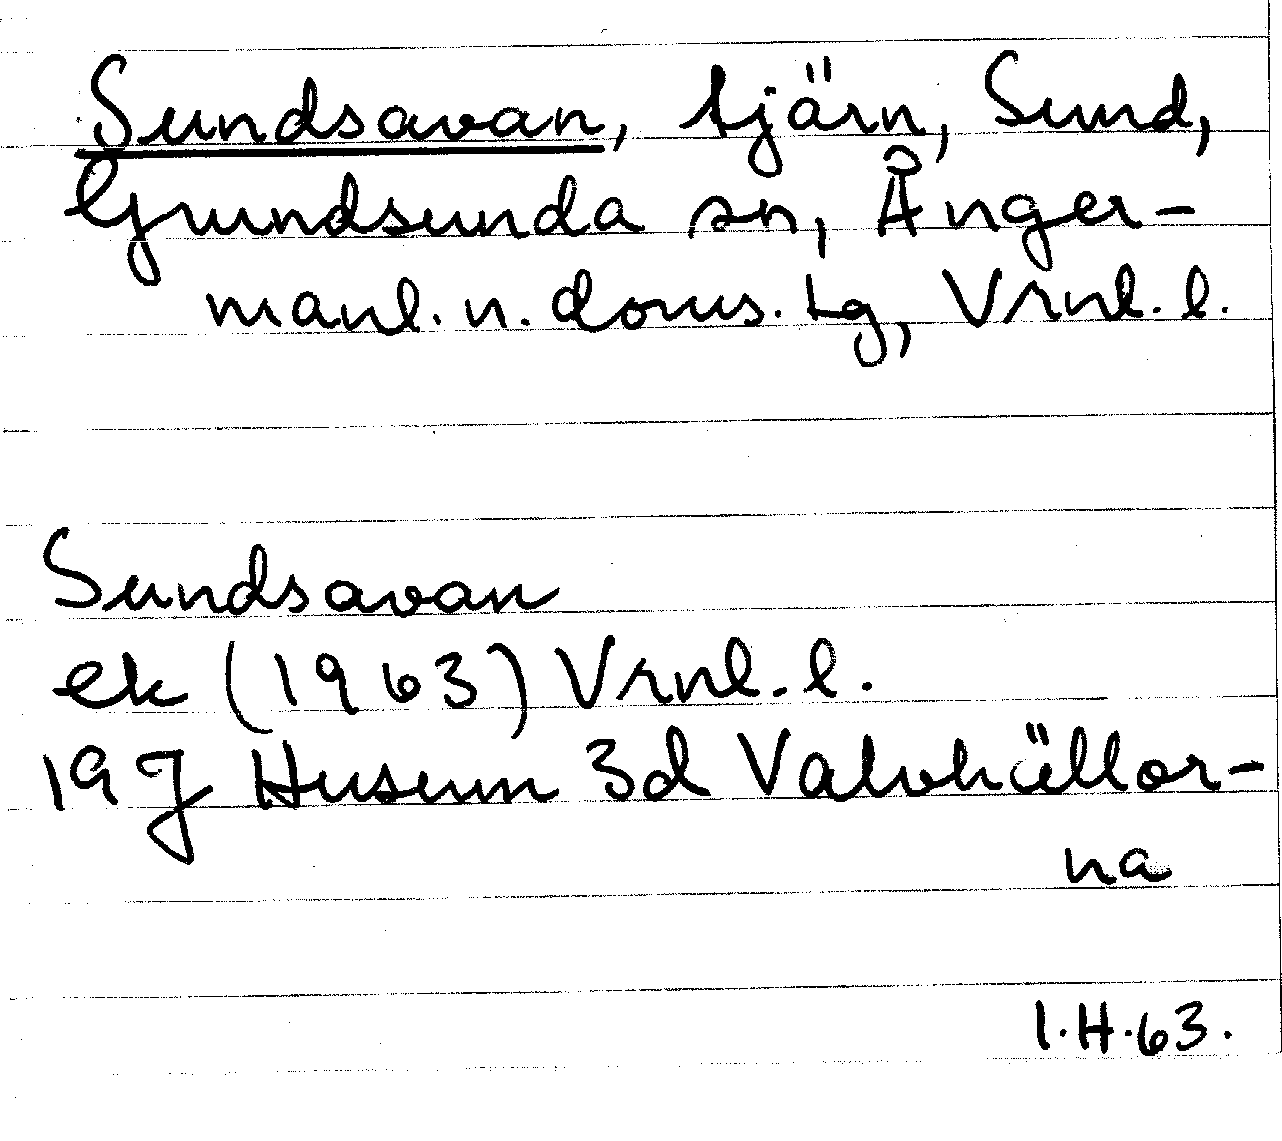 Sundsavan, tjärn, Sund,
Grundsunda sn, Ånger-
manl. n. doms. tg, Vrnl. l.
Sundsavan
ek (1963) Vrnl. l.
19 J Husum 3d Valvhällor-
na
I.H.63.